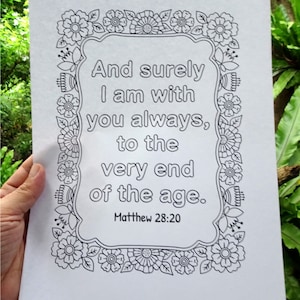 And surely
I am with
you always,
to the
very end
of the age.
Matthew 28:20